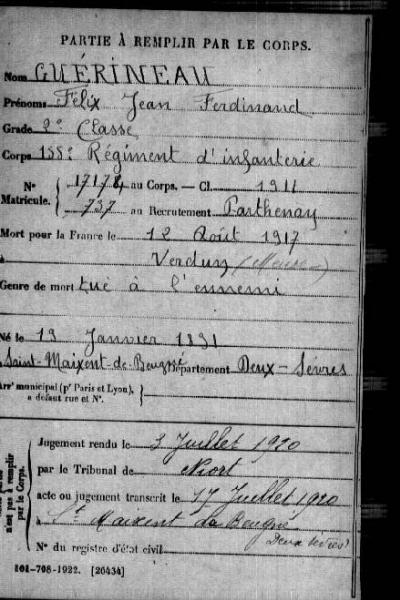 PARTIE À REMPLIR PAR LE CORPS.
Nom GUÉRINEAU
Prénoms Félix Jean Ferdinand
Grade 2e Classe
Corps 155e Régiment d'infanterie
N° 17174 au Corps. — Cl. 1911
Matricule. 737 au Recrutement Parthenay
Mort pour la France le 12 Août 1917
à Verdun (Meuse)
Genre de mort tué à l'ennemi
Né le 19 Janvier 1891
à Saint-Maixent-de-Beugné Département Deux-Sèvres
Arrt municipal (pr Paris et Lyon),
à défaut rue et N°.
n'est pas à remplir
par le Corps.
Jugement rendu le 3 Juillet 1920
par le Tribunal de Niort
acte ou jugement transcrit le 17 Juillet 1920
à St Maixent de Beugné
Deux Sèvres
N° du registre d'état civil
101-708-1922. [26434]